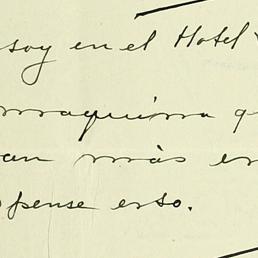 soy en el Hotel
maquina q
an más en
pense esto.